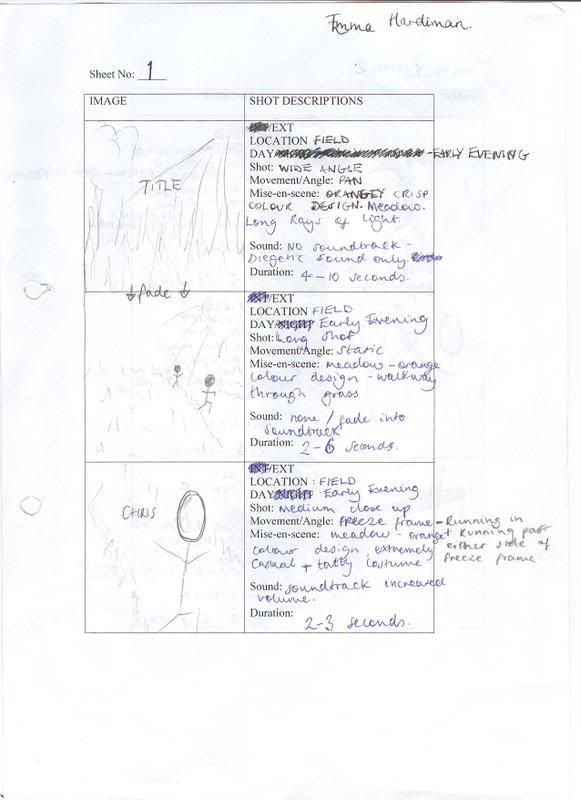 Emma Hardiman.
Sheet No: 1
IMAGE
SHOT DESCRIPTIONS
TITLE
/EXT
LOCATION FIELD
DAY - EARLY EVENING
Shot: WIDE ANGLE
Movement/Angle: PAN
Mise-en-scene: ORANGEY CRISP
COLOUR DESIGN. Meadow.
Long Rays of Light.
Sound: NO Soundtrack -
Diegetic Sound only.
Duration: 4-10 seconds.
↓ fade ↓
/EXT
LOCATION FIELD
DAY Early Evening
Shot: Long Shot
Movement/Angle: Static
Mise-en-scene: meadow - orange
colour design - walkway
through grass
Sound: none / fade into
soundtrack
Duration: 2-6 seconds.
CHRIS
/EXT
LOCATION : FIELD
DAY Early Evening
Shot: Medium close up
Movement/Angle: Freeze frame - Running in
+ Running past
either side of
freeze frame.
Mise-en-scene: meadow - orange
colour design, extremely
casual + tatty costume
Sound: soundtrack increased
volume.
Duration:
2-3 seconds.